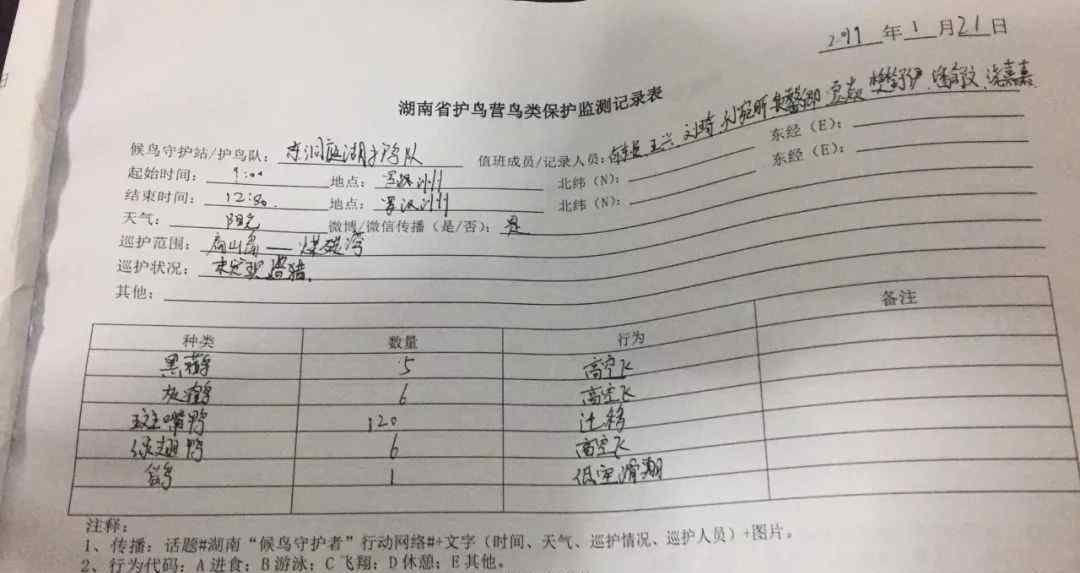 2019 年 1 月 21 日
湖南省护鸟营鸟类保护监测记录表
候鸟守护站/护鸟队: 东洞庭湖 队 值班成员/记录人员: 刘琦 东经(E):
起始时间: 9:00 地点: 北纬(N): 东经(E):
结束时间: 12:30 地点: 北纬(N):
天气: 阳光 微博/微信传播(是/否): 是
巡护范围: 扁山岛——煤炭湾
巡护状况: 未发现盗猎.
其他:
种类 数量 行为 备注
黑鹳 5 高空飞
灰鹤 6 高空飞
斑嘴鸭 120 迁移
绿翅鸭 6 高空飞
1 低空滑翔
注释:
1、传播: 话题#湖南“候鸟守护者”行动网络#+文字(时间、天气、巡护情况、巡护人员)+图片。
2、行为代码: A 进食; B 游泳; C 飞翔; D 休憩; E 其他。